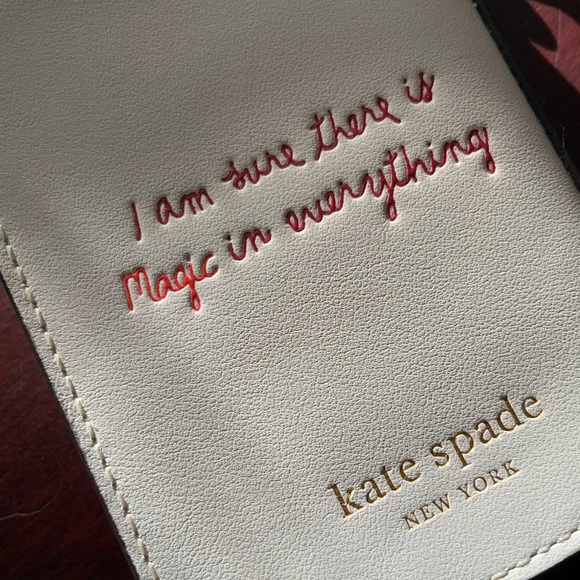 I am sure there is
Magic in everything
kate spade
NEW YORK